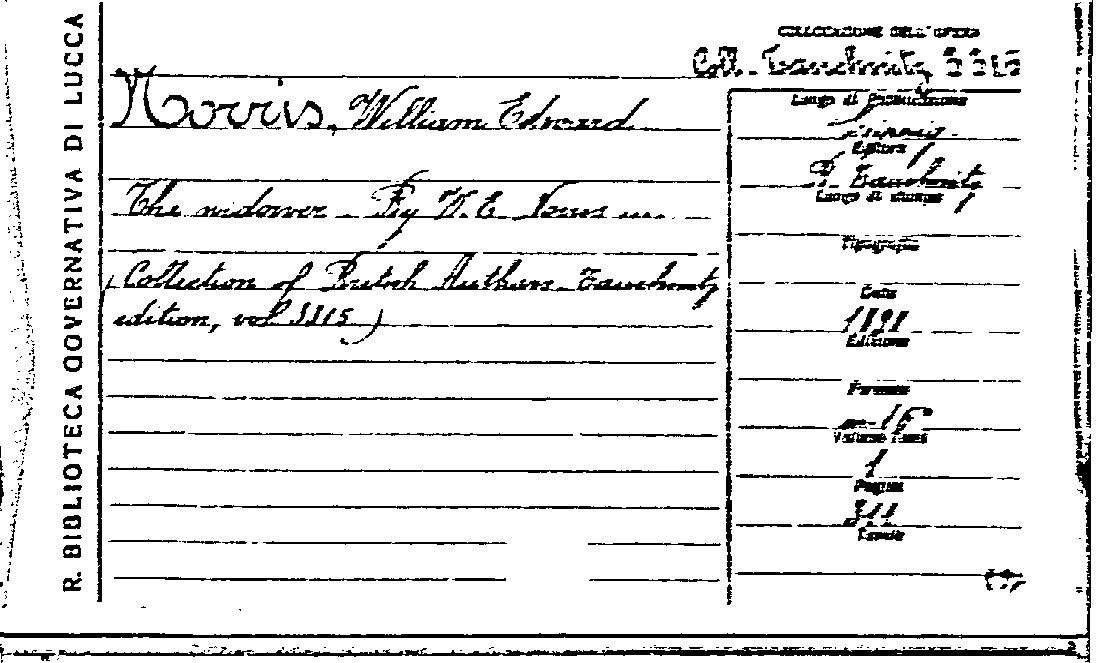 R. BIBLIOTECA GOVERNATIVA DI LUCCA
COLLOCAZIONE DELL'OPERA
Coll. Tauchnitz 3315
Norris, William Edward
The widower - By W. E. Norris ...
(Collection of British Authors - Tauchnitz
edition, vol 3315)
Luogo di Pubblicazione
Editore
B. Tauchnitz
Luogo di stampa
Tipografia
Data
1898
Edizione
Formato
in-16°
Volume
1
Pagine
Tavole